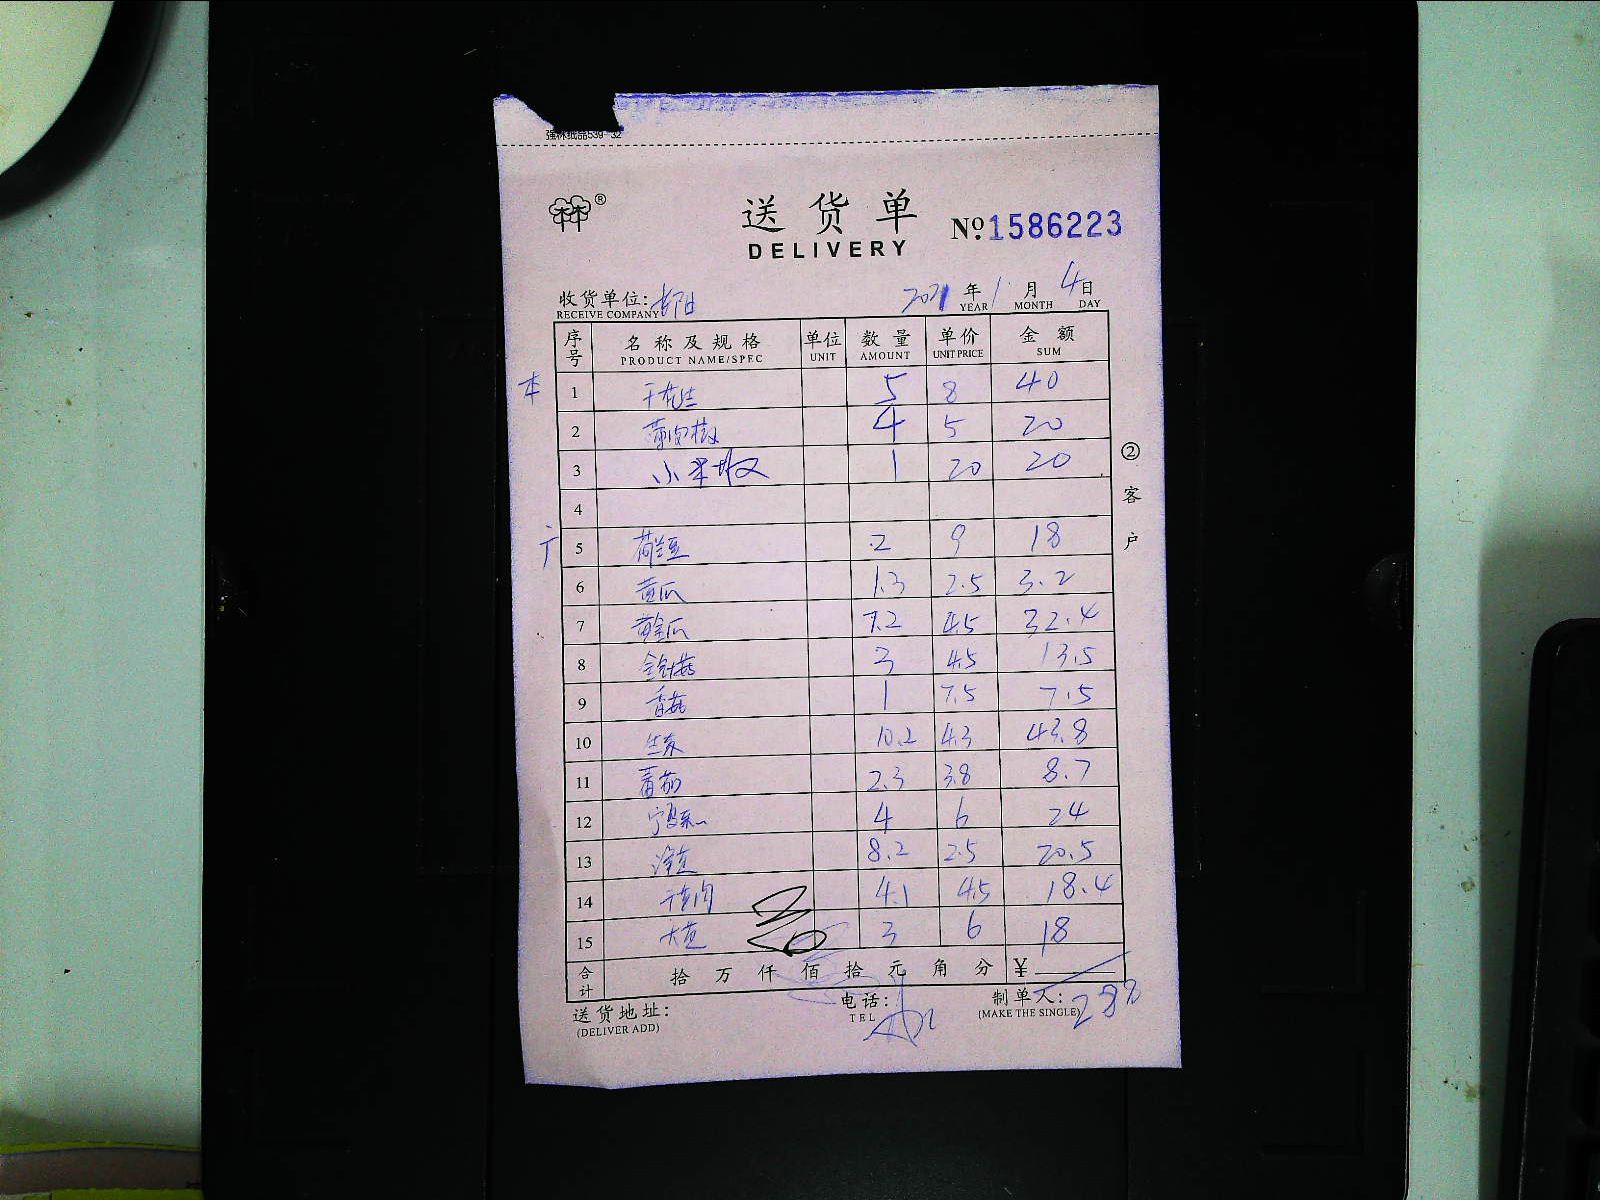 送货单
DELIVERY
№ 1586223
收货单位:
RECEIVE COMPANY
2021 年 1 月 4 日
YEAR MONTH DAY
序号 名称及规格 单位 数量 单价 金额
PRODUCT NAME/SPEC UNIT AMOUNT UNIT PRICE SUM
本 1 干花生 5 8 40
2 4 5 20
3 小米椒 1 20 20
4
5 荷兰豆 2 9 18
6 黄瓜 1.3 2.5 3.2
7 黄金瓜 7.2 4.5 32.4
8 金针菇 3 4.5 13.5
9 香菇 1 7.5 7.5
10 生菜 10.2 4.3 43.8
11 番茄 2.3 3.8 8.7
12 4 6 24
13 8.2 2.5 20.5
14 4.1 4.5 18.4
15 大葱 3 6 18
合计 拾 万 仟 佰 拾 元 角 分 ¥
②客户
送货地址:
(DELIVER ADD)
电话:
TEL
制单人:
(MAKE THE SINGLE)